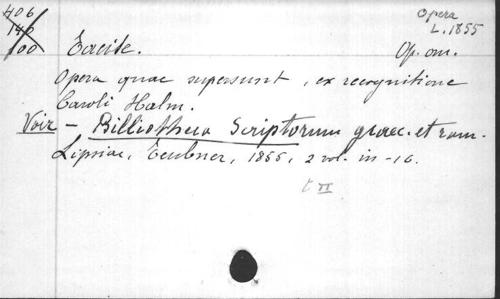 406
140
100
Opera
L. 1855
Tacite. Op. om.
Opera quae supersunt, ex recognitione
Caroli Halm.
Voir – Billiotheca Scriptorum graec. et rom.
Lipsiae, Teubner, 1855, 2 vol. in-16.
t II